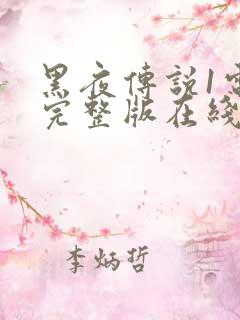 黑夜傳說1
完整版在綫
李炳哲